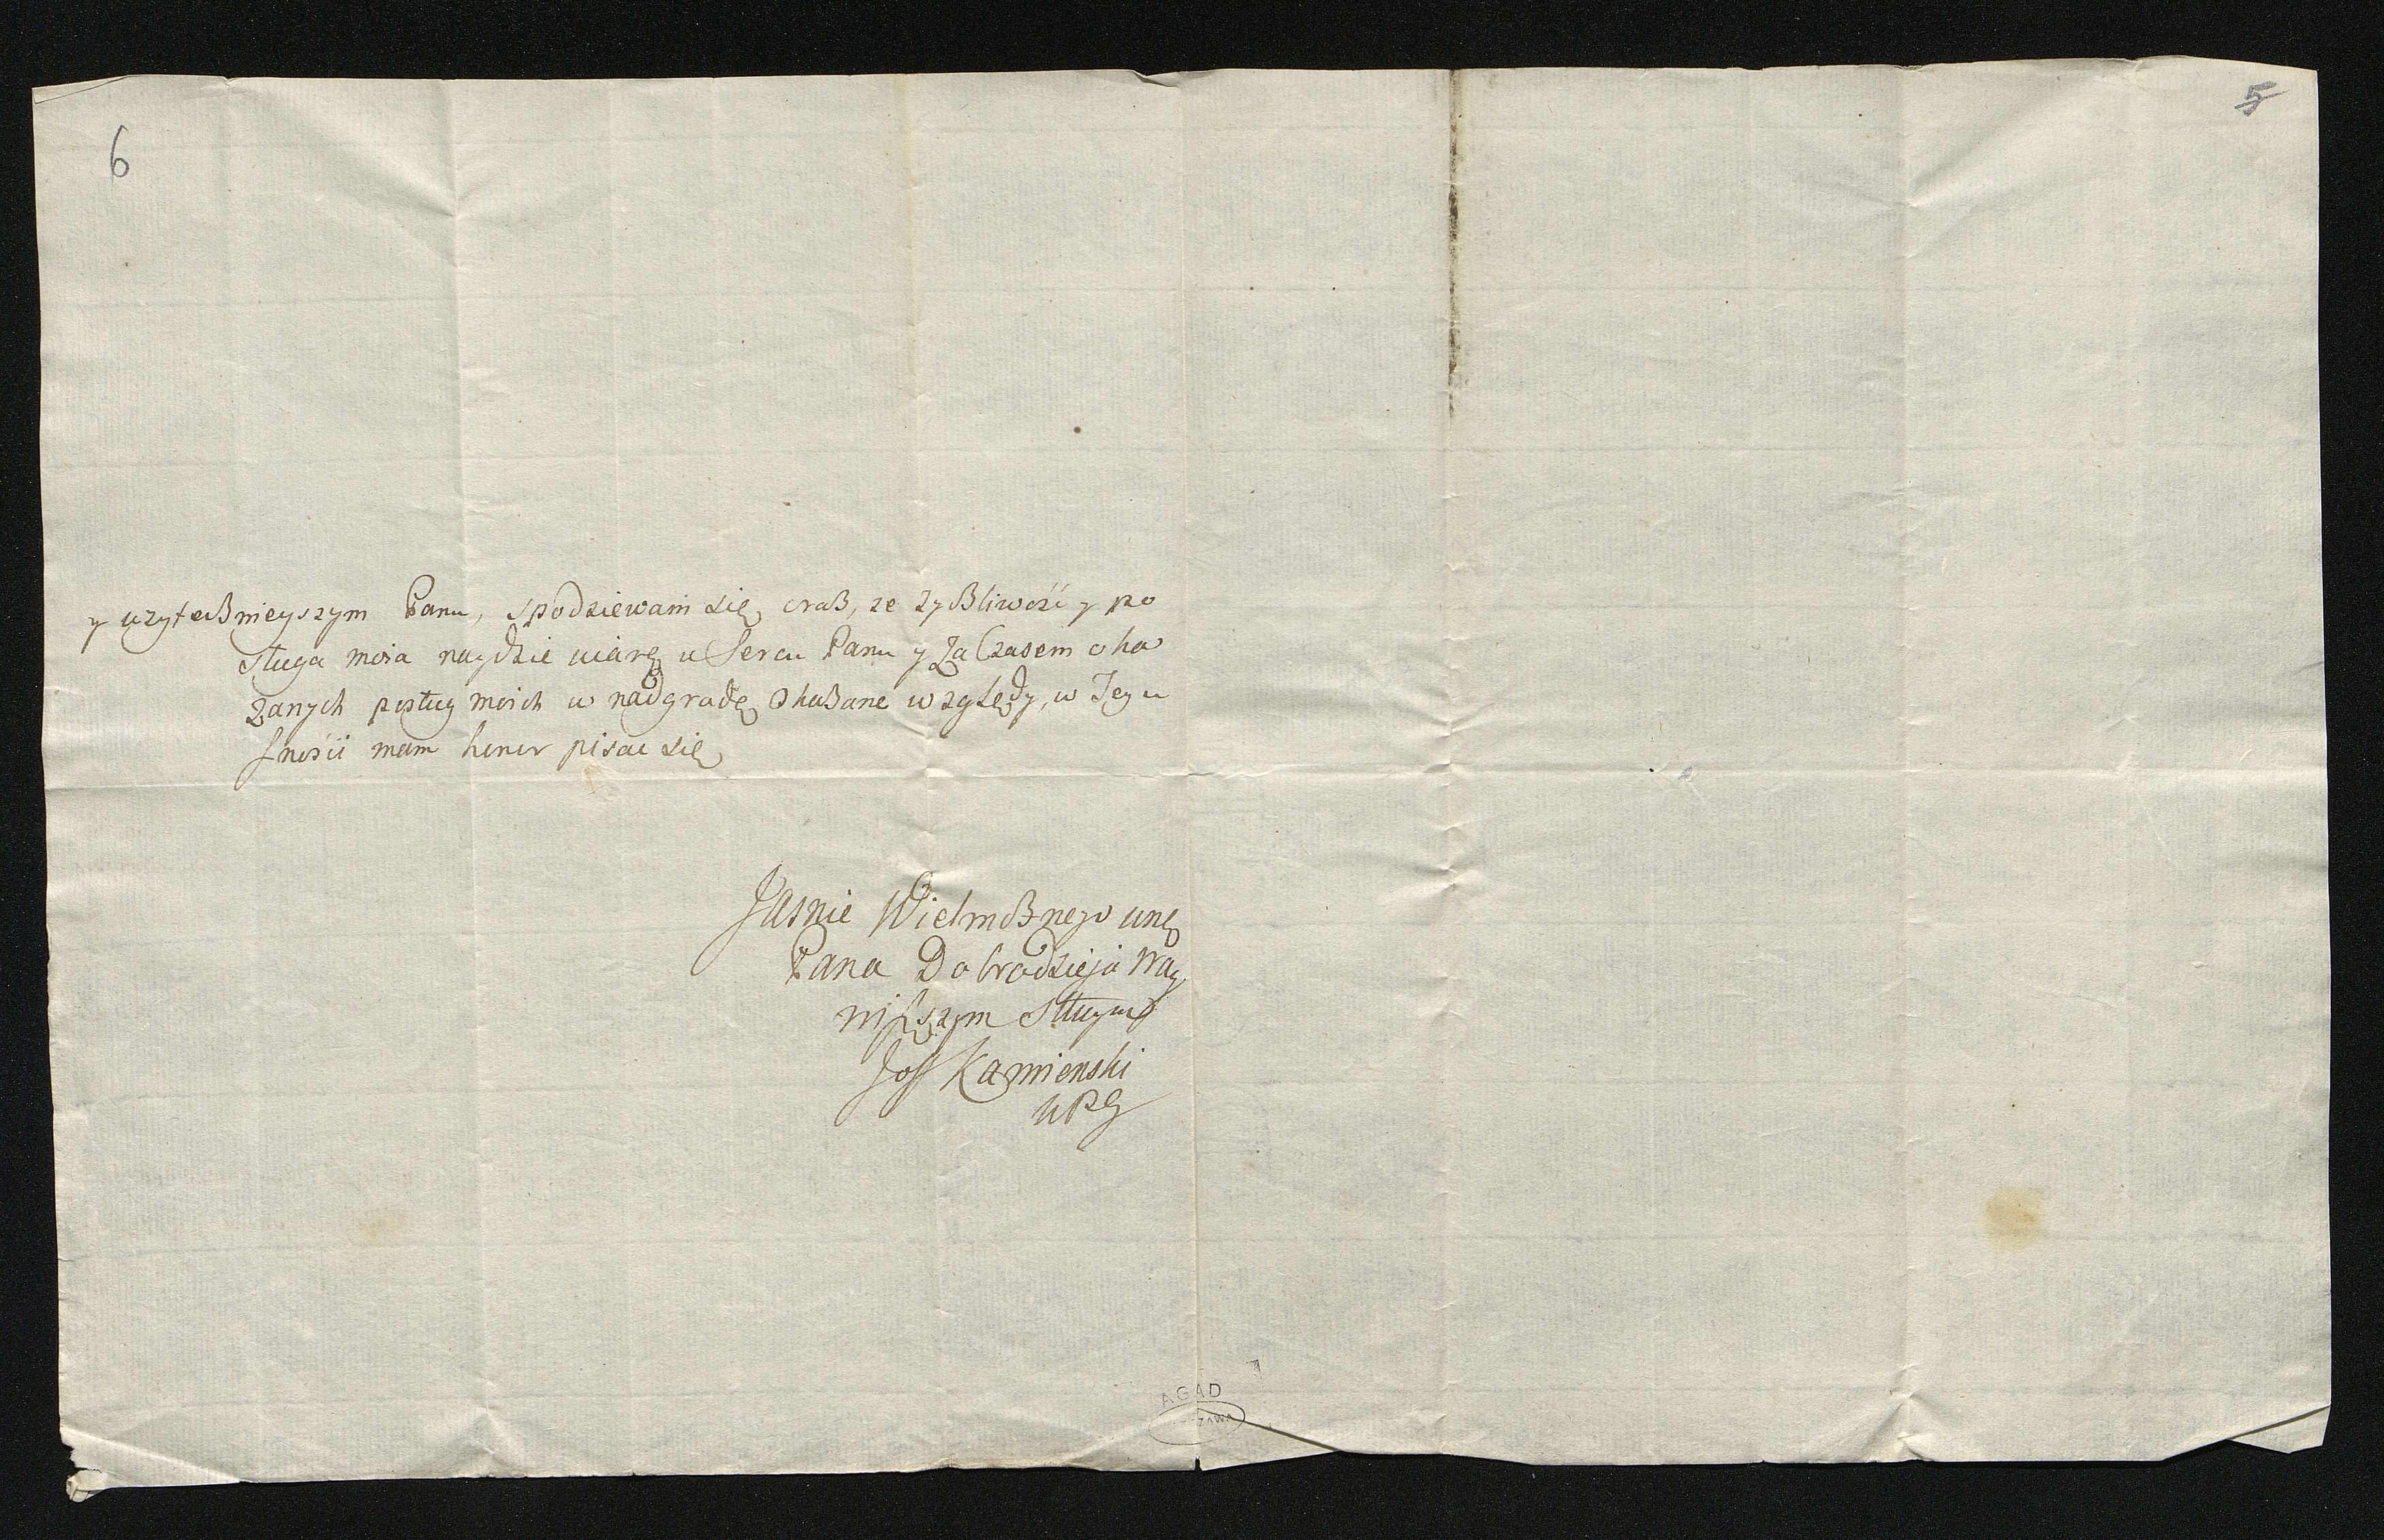 6
5
y uzytecznieyszym Panu, spodziewam się oraz, ze zyczliwość y po
sługa moia naydzie wiarę w Sercu Panu y za Czasem oka
zanych posług moich w nadgrodę okazane względy, w Tey u
fności mam honor pisac się
Jasnie Wielmożnego
Pana Dobrodzieja nay
niższym Sługą
Jos Kamienski
AGAD